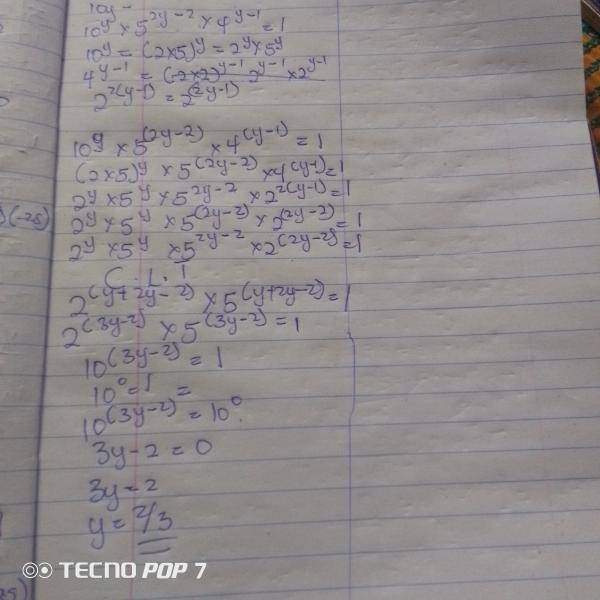 10y -
10^y × 5^2y-2 × 4^y-1 = 1
10^y = (2×5)^y = 2^y × 5^y
4^y-1 = 2^y-1 × 2^y-1
2^2(y-1) = 2^(2y-1)
10^y × 5^(2y-2) × 4^(y-1) = 1
(2×5)^y × 5^(2y-2) × 4^(y-1) = 1
2^y × 5^y × 5^2y-2 × 2^2(y-1) = 1
2^y × 5^y × 5^(2y-2) × 2^(2y-2) = 1
2^y × 5^y × 5^2y-2 × 2^(2y-2) = 1
C . L . T
2^(y+2y-2) × 5^(y+2y-2) = 1
2^(3y-2) × 5^(3y-2) = 1
10^(3y-2) = 1
10^0 = 1 =
10^(3y-2) = 10^0.
3y - 2 = 0
3y = 2
y = 2/3
TECNO POP 7